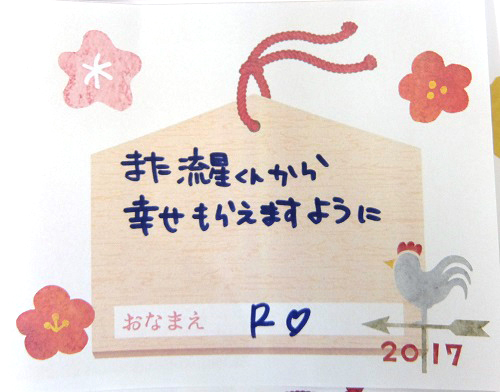 また流星くんから
幸せもらえますように
おなまえ R♡
2017